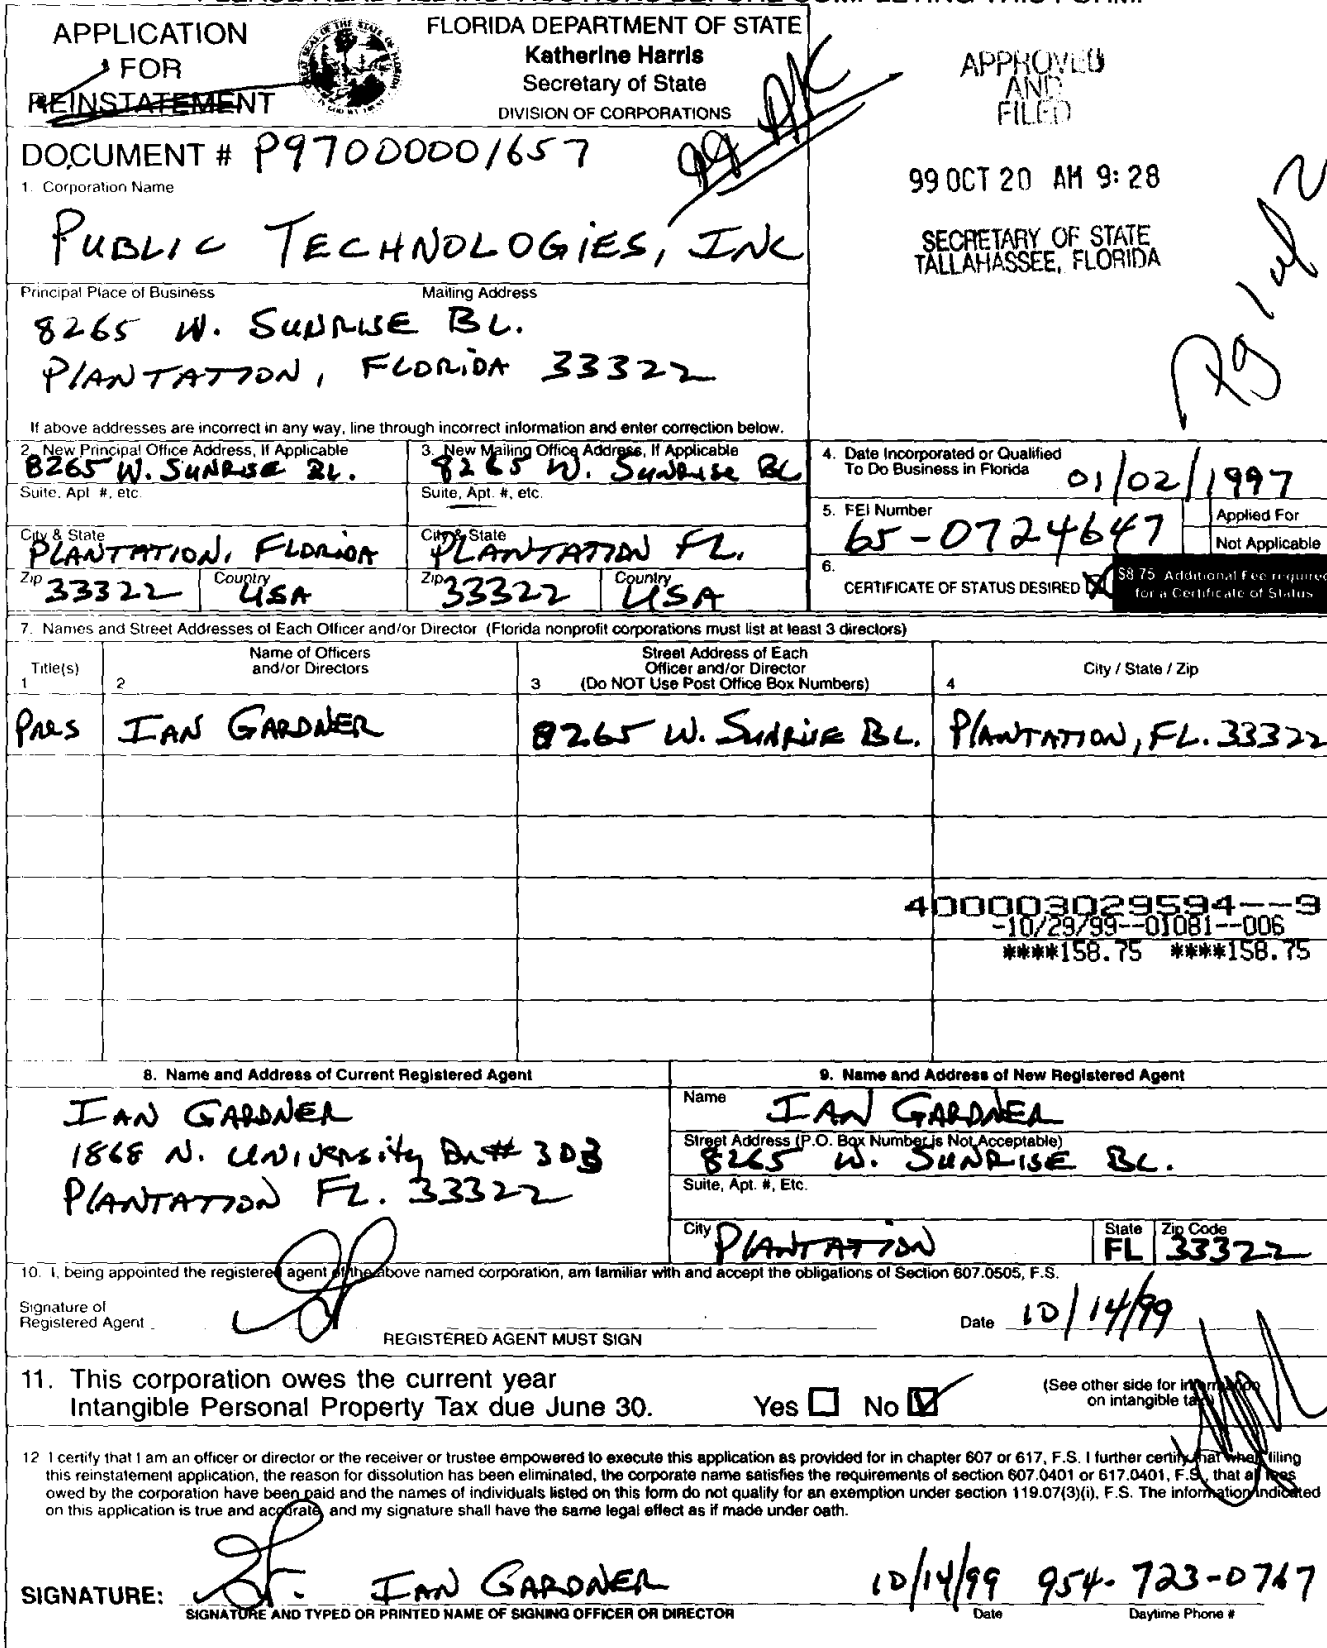 PLEASE READ ALL INSTRUCTIONS BEFORE COMPLETING THIS FORM.
APPLICATION
FOR
REINSTATEMENT
FLORIDA DEPARTMENT OF STATE
Katherine Harris
Secretary of State
DIVISION OF CORPORATIONS
99 AR
APPROVED
AND
FILED
99 OCT 20 AM 9:28
SECRETARY OF STATE
TALLAHASSEE, FLORIDA
Pg 1 of 2
DOCUMENT # P97000001657
1. Corporation Name
PUBLIC TECHNOLOGIES, INC
Principal Place of Business Mailing Address
8265 W. SUNRISE BL.
PLANTATION, FLORIDA 33322
If above addresses are incorrect in any way, line through incorrect information and enter correction below.
2. New Principal Office Address, If Applicable
8265 W. SUNRISE BL.
Suite, Apt. #, etc.
City & State
PLANTATION, FLORIDA
Zip 33322 Country USA
3. New Mailing Office Address, If Applicable
8265 W. SUNRISE BL
Suite, Apt. #, etc.
City & State
PLANTATION FL.
Zip 33322 Country USA
4. Date Incorporated or Qualified
To Do Business in Florida 01/02/1997
5. FEI Number
65-0724647
Applied For
Not Applicable
6.
CERTIFICATE OF STATUS DESIRED
$8.75 Additional Fee required
for a Certificate of Status
7. Names and Street Addresses of Each Officer and/or Director (Florida nonprofit corporations must list at least 3 directors)
Title(s)
1
Name of Officers
and/or Directors
2
Street Address of Each
Officer and/or Director
3 (Do NOT Use Post Office Box Numbers)
City / State / Zip
4
PRES IAN GARDNER 8265 W. SUNRISE BL. PLANTATION, FL. 33322
400003029594--9
-10/29/99--01081--006
****158.75 ****158.75
8. Name and Address of Current Registered Agent
IAN GARDNER
1868 N. UNIVERSITY DR # 303
PLANTATION FL. 33322
9. Name and Address of New Registered Agent
Name IAN GARDNER
Street Address (P.O. Box Number is Not Acceptable)
8265 W. SUNRISE BL.
Suite, Apt. #, Etc.
City PLANTATION State FL Zip Code 33322
10. I, being appointed the registered agent of the above named corporation, am familiar with and accept the obligations of Section 607.0505, F.S.
Signature of
Registered Agent
REGISTERED AGENT MUST SIGN
Date 10/14/99
11. This corporation owes the current year
Intangible Personal Property Tax due June 30. Yes No
(See other side for information
on intangible tax)
12 I certify that I am an officer or director or the receiver or trustee empowered to execute this application as provided for in chapter 607 or 617, F.S. I further certify that when filing
this reinstatement application, the reason for dissolution has been eliminated, the corporate name satisfies the requirements of section 607.0401 or 617.0401, F.S., that all fees
owed by the corporation have been paid and the names of individuals listed on this form do not qualify for an exemption under section 119.07(3)(i), F.S. The information indicated
on this application is true and accurate, and my signature shall have the same legal effect as if made under oath.
SIGNATURE: IAN GARDNER 10/14/99 954-723-0767
SIGNATURE AND TYPED OR PRINTED NAME OF SIGNING OFFICER OR DIRECTOR Date Daytime Phone #